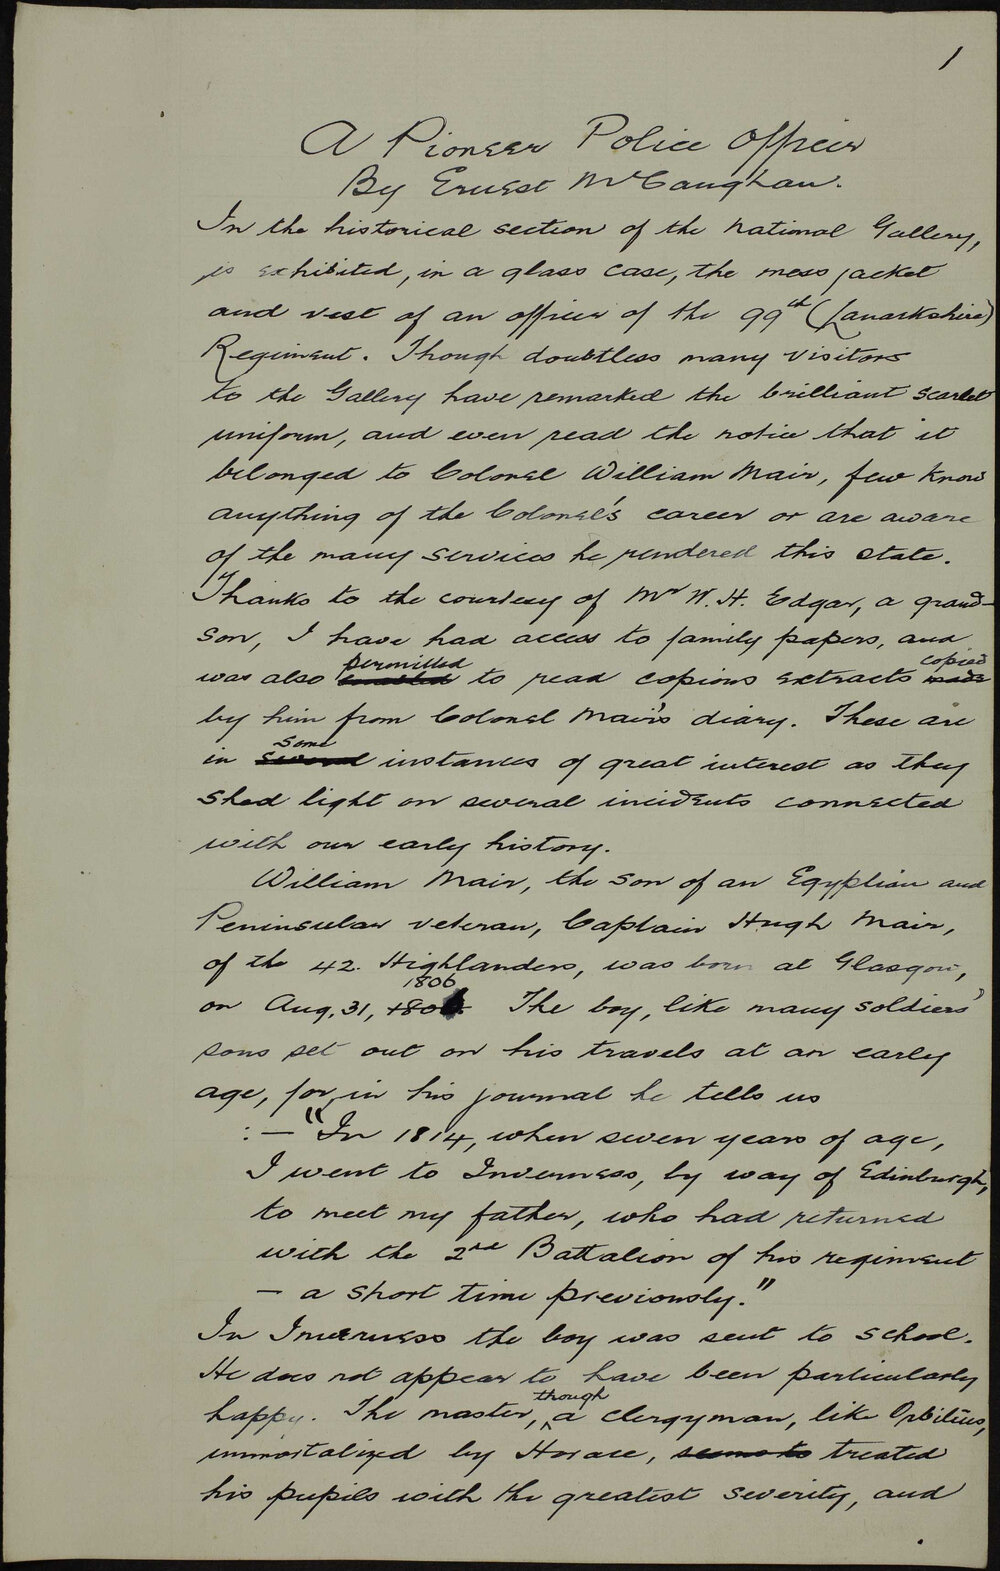 1
A Pioneer Police Officer
By Ernest McCaughan.
In the historical section of the National Gallery,
is exhibited, in a glass case, the mess jacket
and vest of an officer of the 99th (Lanarkshire)
Regiment. Though doubtless many visitors
to the Gallery have remarked the brilliant scarlet
uniform, and even read the notice that it
belonged to Colonel William Mair, few know
anything of the Colonel's career or are aware
of the many services he rendered this state.
Thanks to the courtesy of Mr W. H. Edgar, a grand-
son, I have had access to family papers, and
permitted copied
was also enabled to read copious extracts made
by him from Colonel Mair's diary. These are
some
in several instances of great interest as they
shed light on several incidents connected
with our early history.
William Mair, the son of an Egyptian and
Peninsular veteran, Captain Hugh Mair,
of the 42. Highlanders, was born at Glasgow,
1806
on Aug, 31, 1806. The boy, like many soldiers'
sons set out on his travels at an early
age, for, in his journal he tells us
:— "In 1814, when seven years of age,
I went to Inverness, by way of Edinburgh,
to meet my father, who had returned
with the 2nd Battalion of his regiment
— a short time previously."
In Inverness the boy was sent to school.
He does not appear to have been particularly
though
happy. The master, ^ a clergyman, like Orbilius,
immortalized by Horace, seems to treated
his pupils with the greatest severity, and